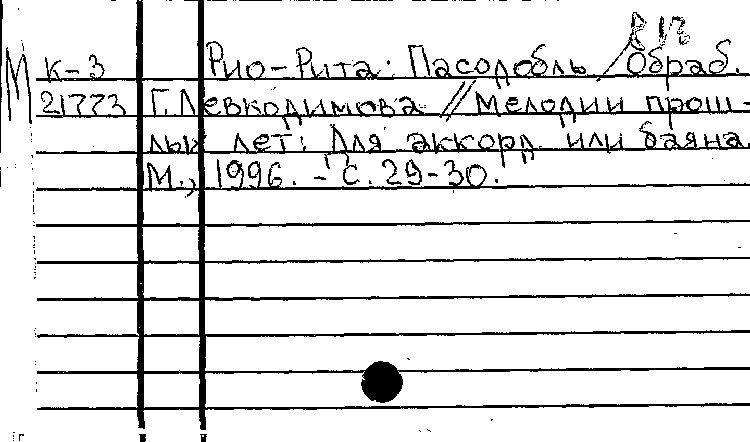 М К-3 Рио-Рита: Пасодобль / Обраб.
21773 Г. Левкодимова // Мелодии прош-
лых лет: Для аккорд. или баяна.
М., 1996. - С. 29-30.